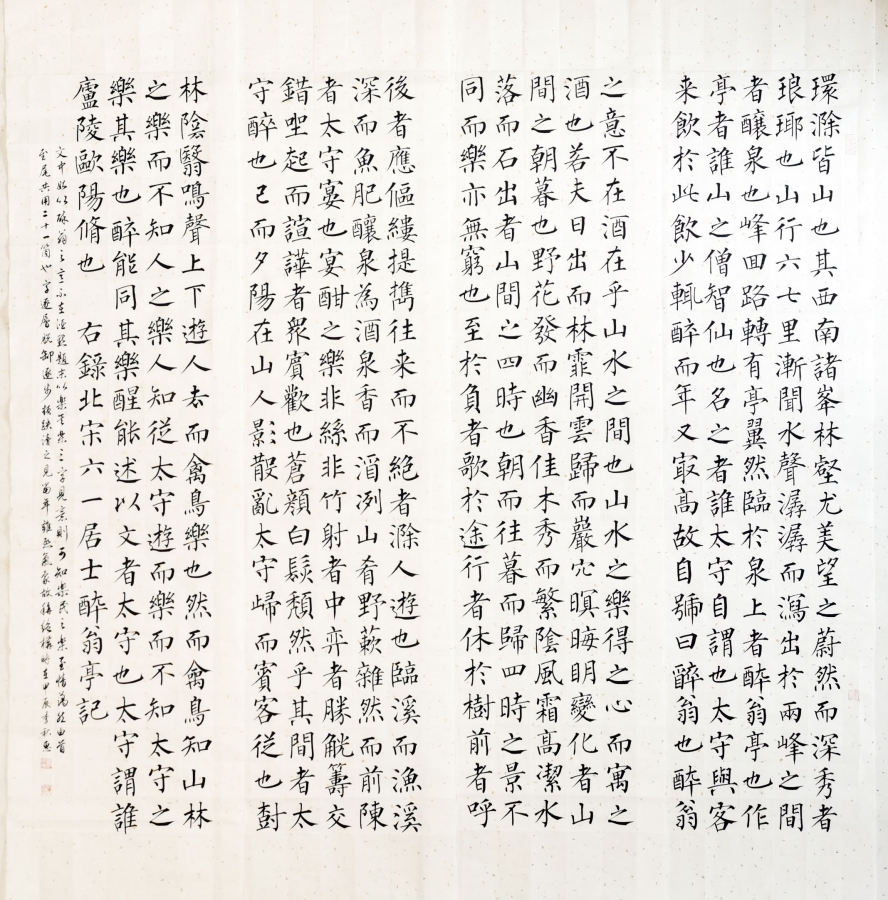 環滁皆山也其西南諸峯林壑尤美望之蔚然而深秀者
琅瑘也山行六七里漸聞水聲潺潺而瀉出於兩峰之間
者釀泉也峰回路轉有亭翼然臨於泉上者醉翁亭也作
亭者誰山之僧智仙也名之者誰太守自謂也太守與客
来飲於此飲少輒醉而年又㝡高故自號曰醉翁也醉翁
之意不在酒在乎山水之間也山水之樂得之心而寓之
酒也若夫日出而林霏開雲歸而巖穴暝晦明變化者山
間之朝暮也野花發而幽香佳木秀而繁陰風霜高潔水
落而石出者山間之四時也朝而往暮而歸四時之景不
同而樂亦無窮也至於負者歌於途行者休於樹前者呼
後者應傴縷提擕往来而不絶者滁人遊也臨溪而漁溪
深而魚肥釀泉為酒泉香而酒冽山肴野蔌雜然而前陳
者太守宴也宴酣之樂非絲非竹射者中弈者勝觥籌交
錯坐起而諠譁者衆賓歡也蒼顔白鬚頹然乎其間者太
守醉也已而夕陽在山人影散亂太守歸而賓客従也樹
林陰翳鳴聲上下遊人去而禽鳥樂也然而禽鳥知山林
之樂而不知人之樂人知従太守遊而樂而不知太守之
樂其樂也醉能同其樂醒能述以文者太守也太守謂誰
廬陵歐陽脩也 右錄北宋六一居士醉翁亭記
文中如以醉翁之意不在酒 末以樂 字見 則可知樂民之樂至情
至尾共用二十一箇也字逐層脫卸逐步 之見 甲辰季秋